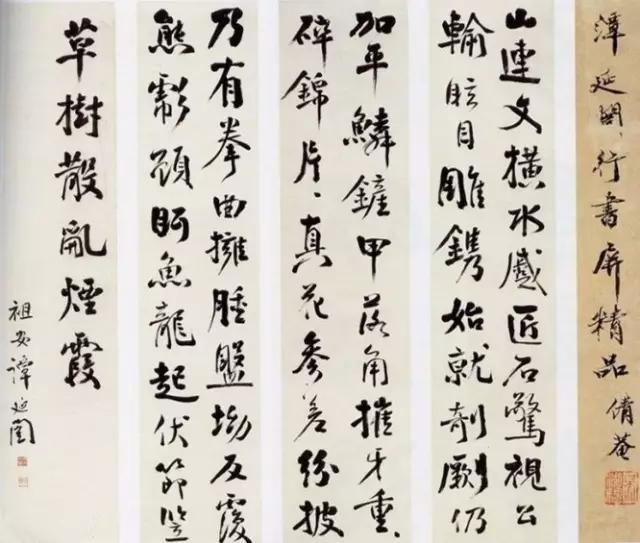 譚延闓、行書屏精品 倩菴
山連文橫水蹙匠石驚視公
輸眩目雕鐫始就剞劂仍
加平鱗鏟甲落角摧牙重〻
碎錦片〻真花參差紛披
乃有拳曲擁腫盤坳反覆
熊彪顧盼魚龍起伏節豎
草樹散亂煙霞
祖安譚延闓